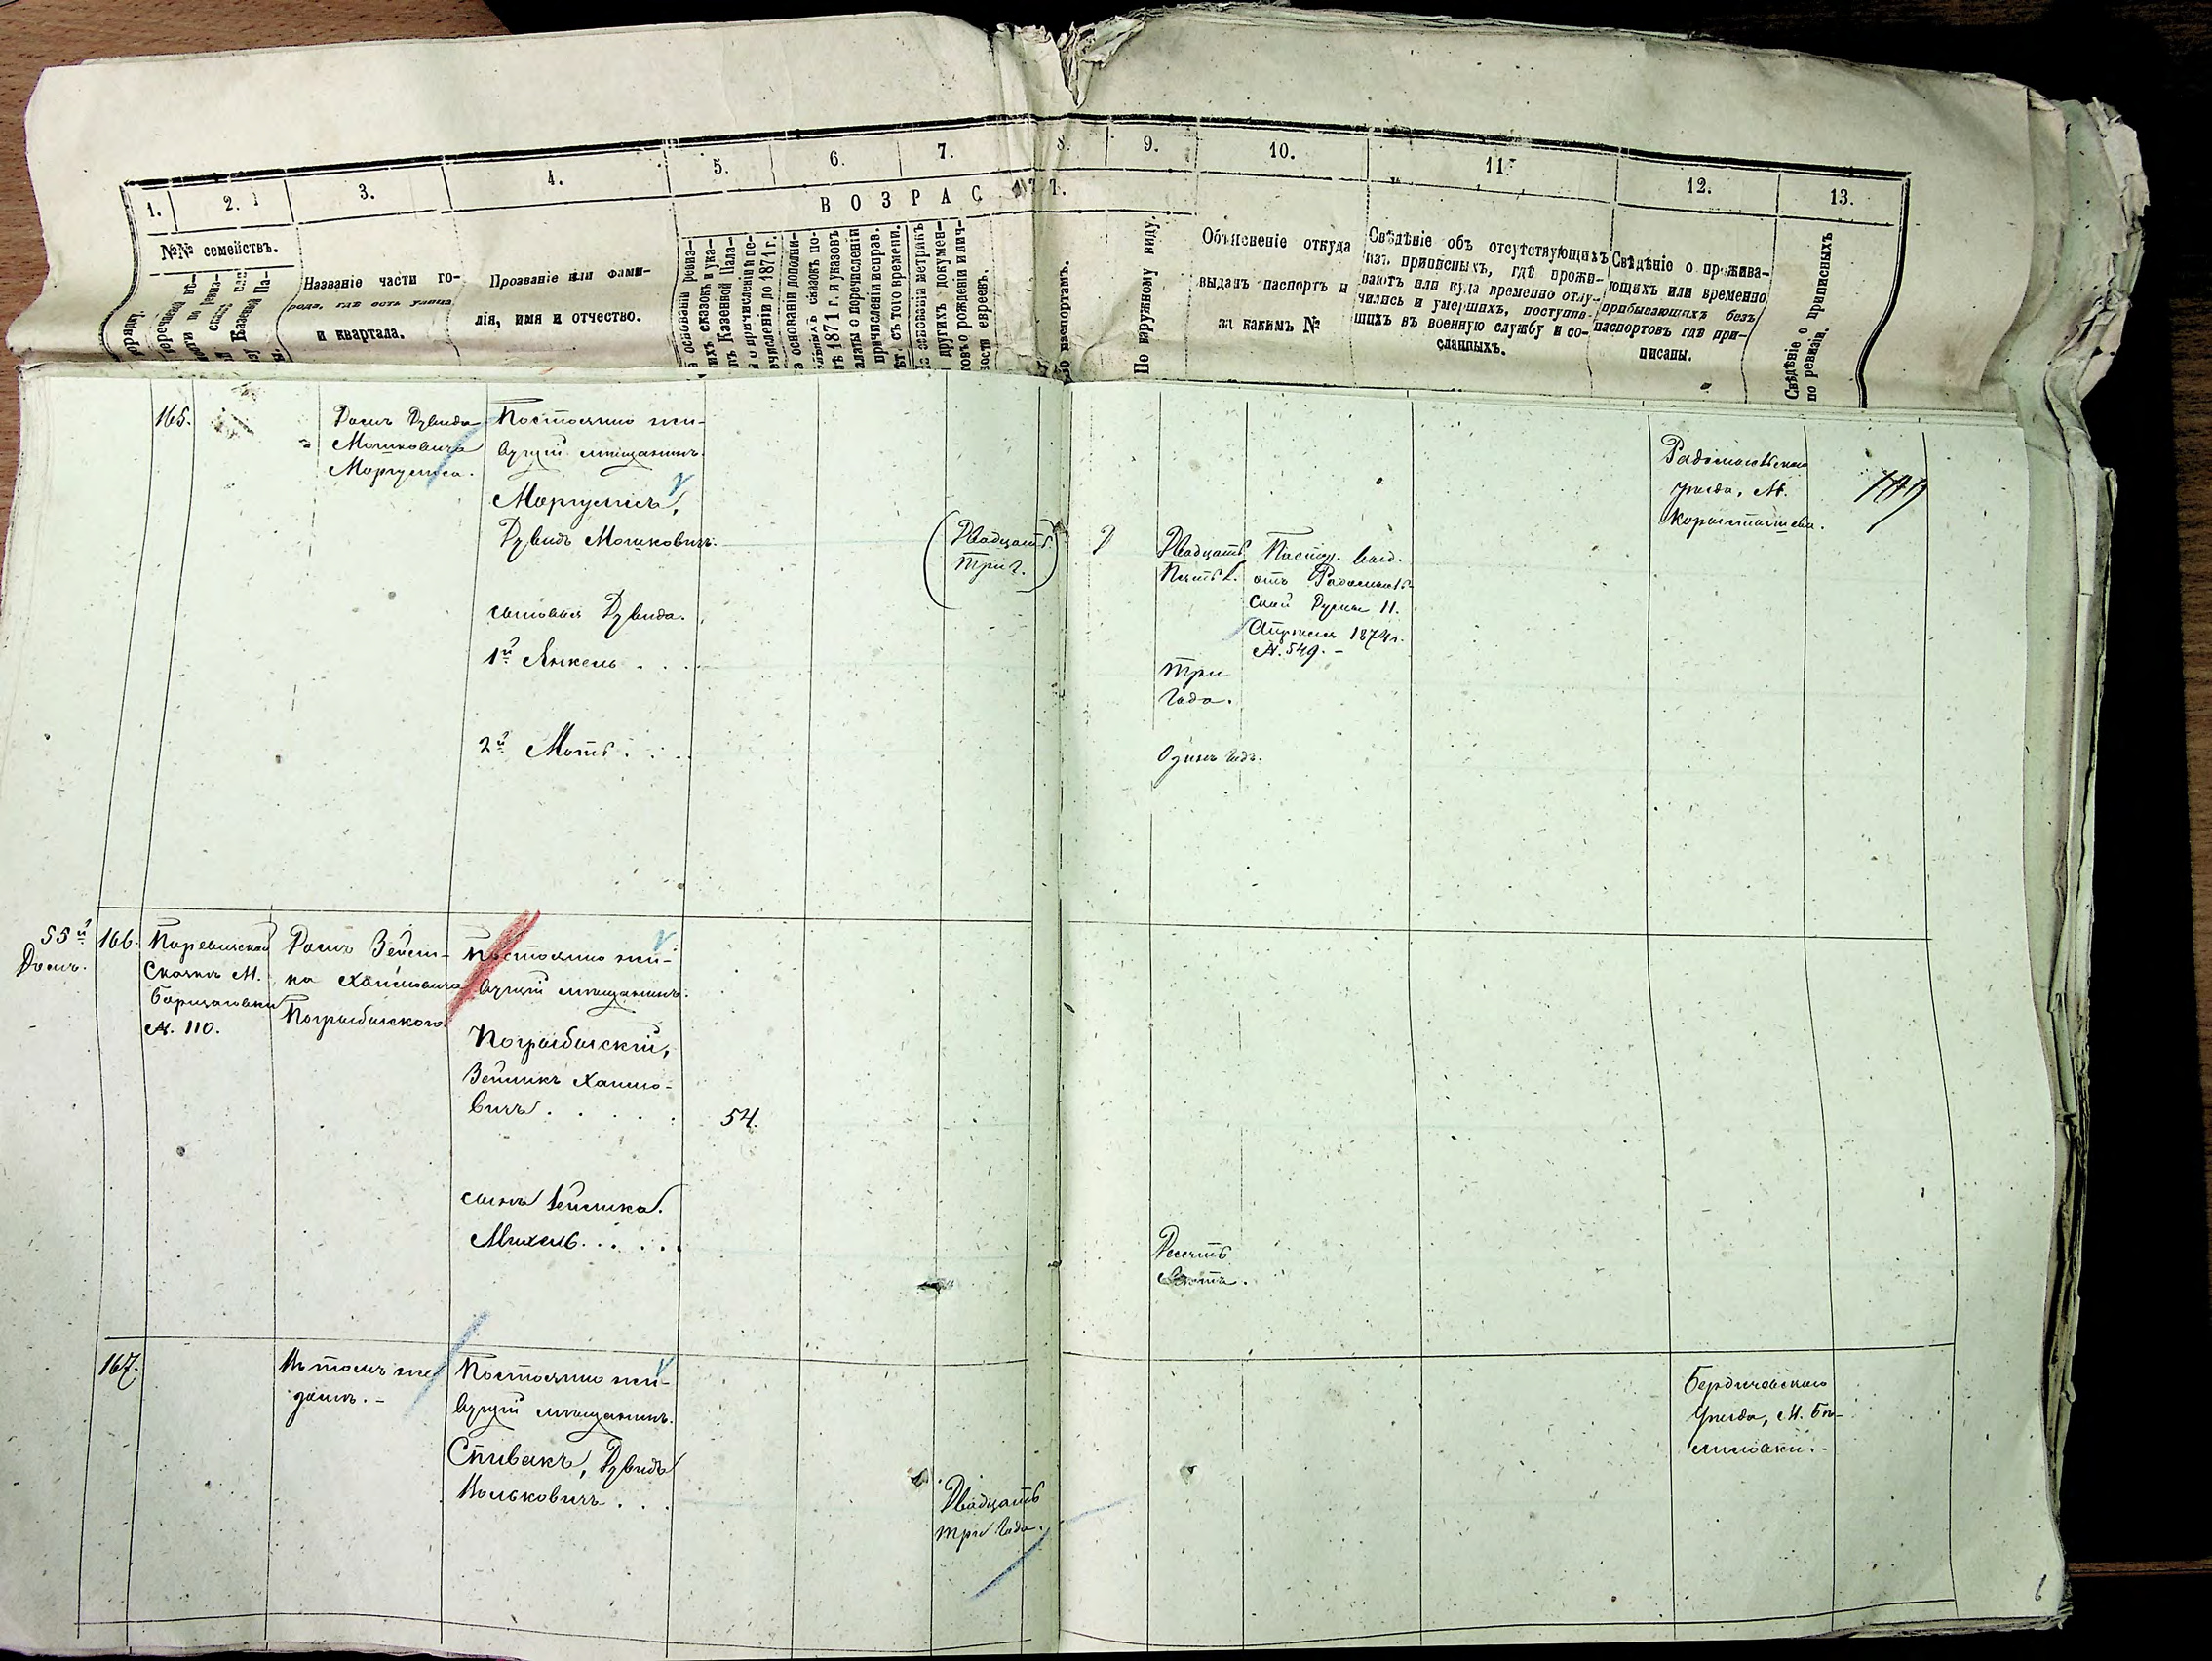 1.
2.
3.
4.
5.
6.
7.
8.
9.
10.
11.
12.
13.
ВОЗРАС
№№ семействъ.
Названіе части го-
рода, гдѣ есть улица
и квартала.
Прозваніе или фами-
лія, имя и отчество.
основаніи ревиз-
скихъ сказокъ и ука-
Казенной Пала-
о причисленіи и пе-
речисленіи до 1871 г.
основаніи дополни-
сказокъ по-
1871 г. и указовъ
алаты о перечисленіи
причисленіи исправ.
съ того времени.
основаніи метрикъ
другихъ докумен-
товъ о рожденіи и лич-
ности евреевъ.
по паспортамъ.
По наружному виду.
Объясненіе откуда
выданъ паспортъ и
за какимъ №
Свѣдѣніе объ отсутствующихъ
изъ приписныхъ, гдѣ прожи-
ваютъ или куда временно отлу-
чились и умершихъ, поступив-
шихъ въ военную службу и со-
сланныхъ.
Свѣдѣніе о прожива-
ющихъ или временно
прибывающихъ безъ
паспортовъ гдѣ при-
писаны.
Свѣдѣніе о приписныхъ
по ревизіи.
165.
Домъ Дувида
Мошковича
Маргулиса.
Постоянно жи-
вущій мѣщанинъ.
Маргулисъ,
Дувидъ Мошковичъ.
(Двадцать
три г.)
Двадцать
Пять л.
Паспор. выд.
отъ Радомысль-
ской Думы 11.
Апрѣля 1874 г.
№. 549. -
Радомысльскаго
Уѣзда, М.
Коростышева.
сыновья Дувида.
1й Янкель . . .
Три
Года.
2й Моть . . .
Одинъ годъ.
55й
Домъ.
166.
По ревизской
Сказкѣ М.
Борщаговки
№. 110.
Домъ Зейли-
ка Хаимовича
Погребыскаго.
Постоянно жи-
вущій мѣщанинъ.
Погребыскій,
Зейликъ Хаимо-
вичъ . . . .
54.
сынъ Зейлика.
Михель . . . .
Десять
Лѣтъ.
167.
Въ томъ же
домѣ. -
Постоянно жи-
вущій мѣщанинъ.
Спивакъ, Дувидъ
Вольковичъ . . .
Двадцать
три года.
Бердичевскаго
Уѣзда, М. Бѣ-
лиловки. -